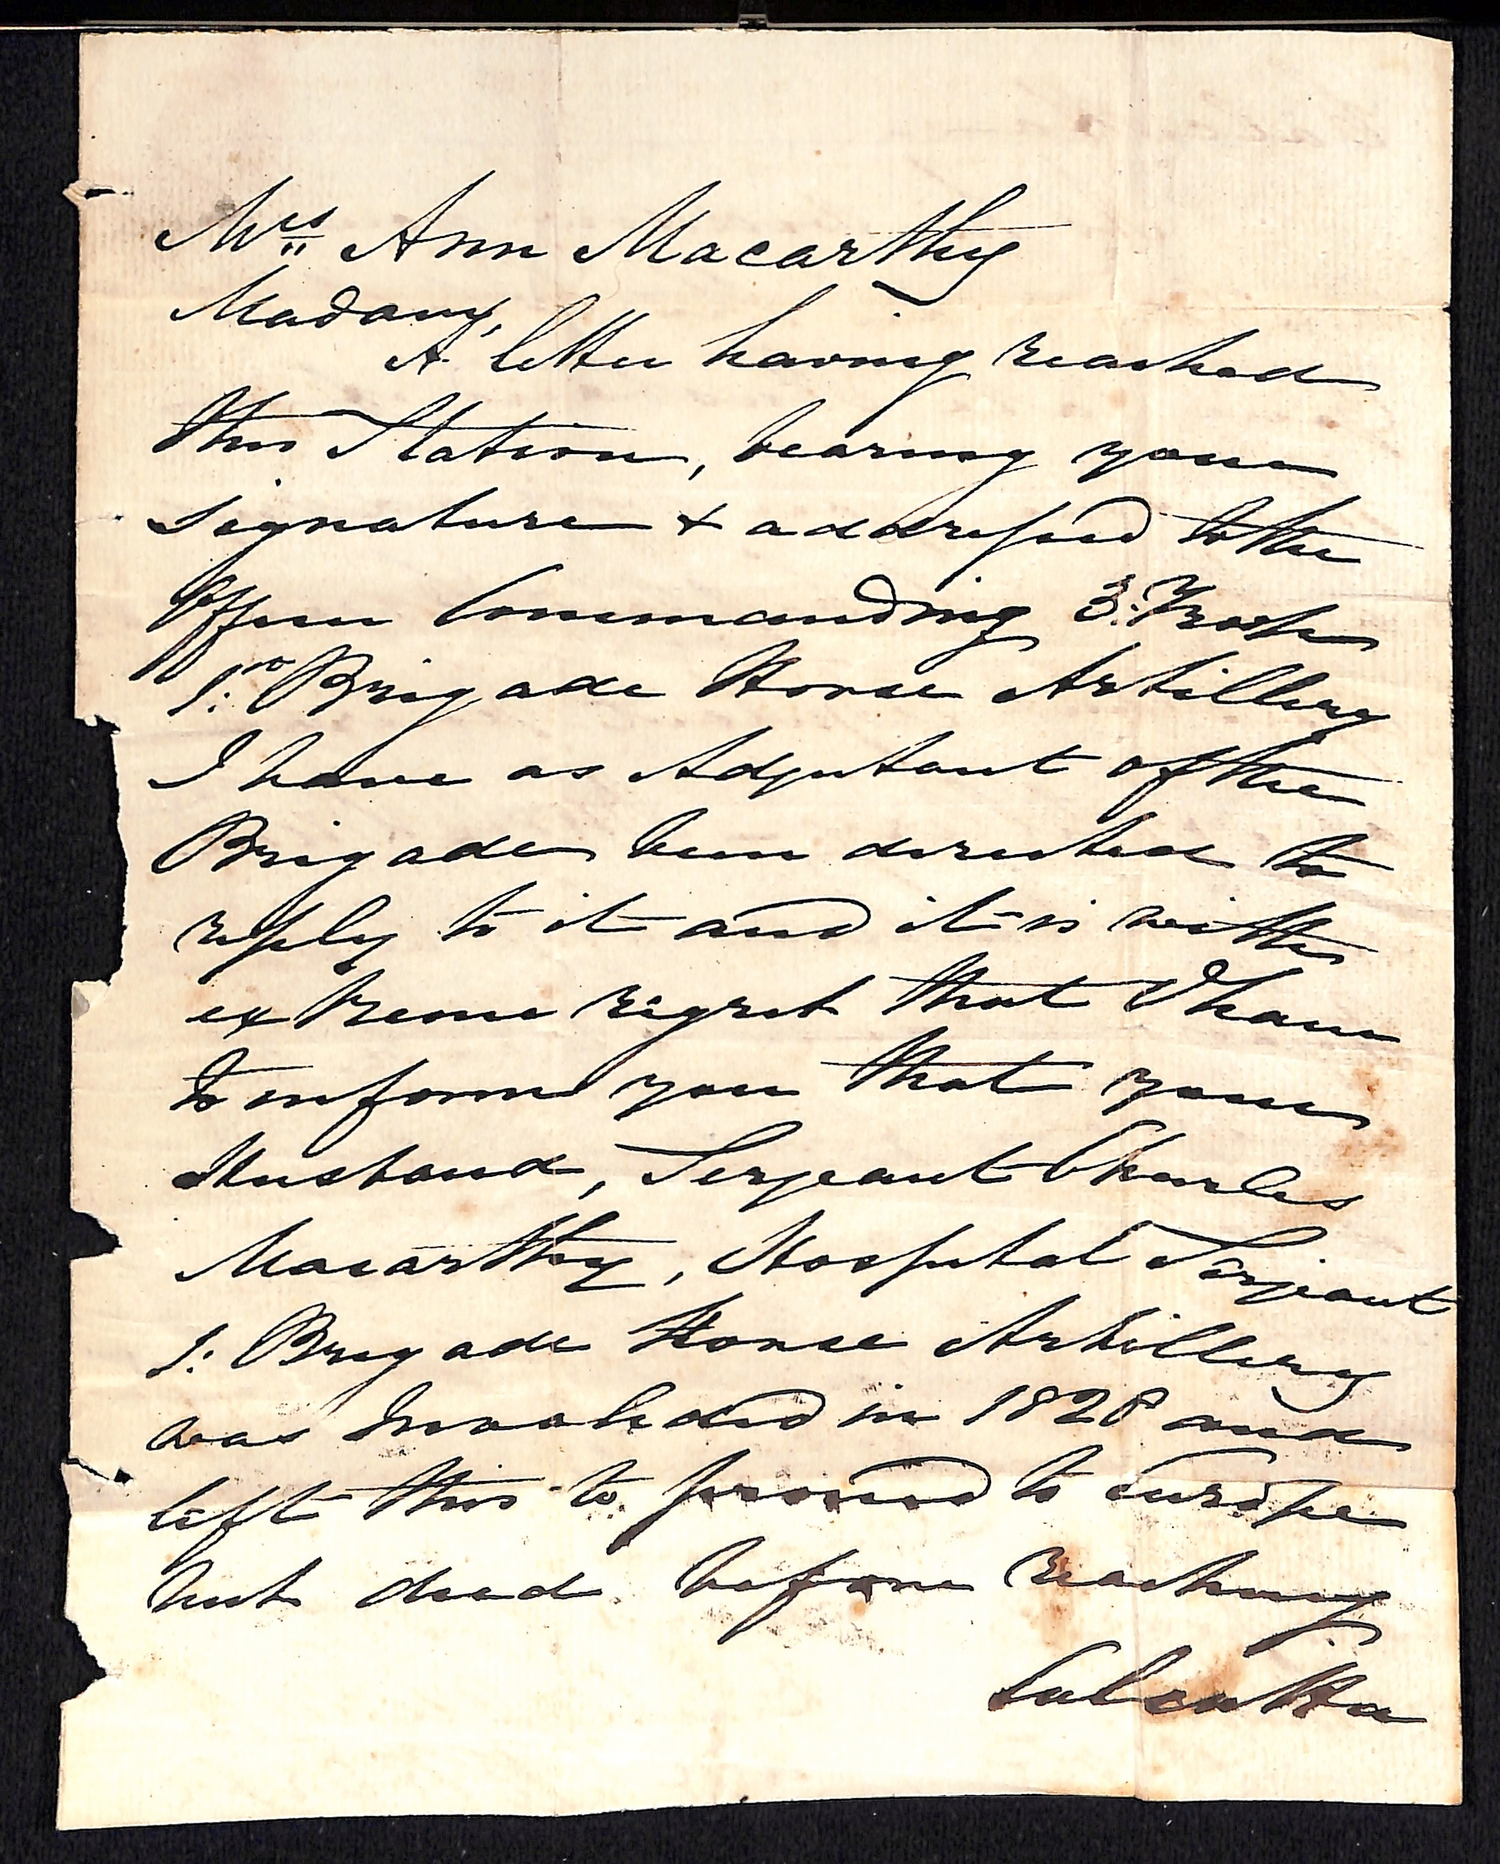 Mrs Ann Macarthy
Madam,
A letter having reached
this Station, bearing your
signature & addressed to the
Officer Commanding 3: Troop
1: Brigade Horse Artillery
I have as Adjutant of the
Brigade been directed to
reply to it and it is with
extreme regret that I have
to inform you that your
Husband, Serjeant Charles
Macarthy, Hospital Serjeant
1: Brigade Horse Artillery
was Invalided in 1828 and
left this to proceed to Europe
but died before reaching
Calcutta